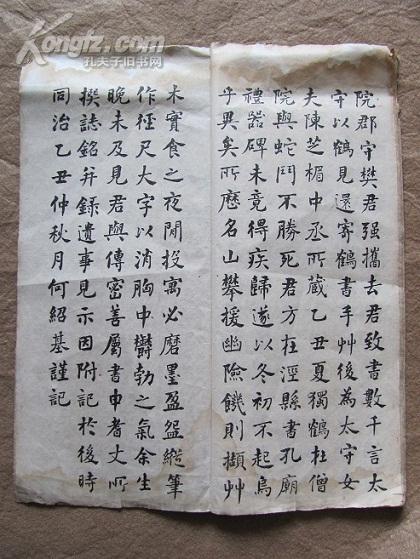 Kongfz.com
孔夫子旧书网
院郡守樊君强攜去君致書數千言太
守以鶴見還寄鶴書手艸後為太守女
夫陳芝楣中丞所藏乙丑夏獨鶴在僧
院與蛇鬥不勝死君方在涇縣書孔廟
禮器碑未竟得疾歸遂以冬初不起烏
乎異矣所歷名山攀援幽險饑則擷艸
木實食之夜閒投寓必磨墨盈盌縱筆
作徑尺大字以消胸中鬱勃之氣余生
晚未及見君與傳密善屬書申耆丈所
撰誌銘并錄遺事見示因附記於後時
同治乙丑仲秋月何紹基謹記